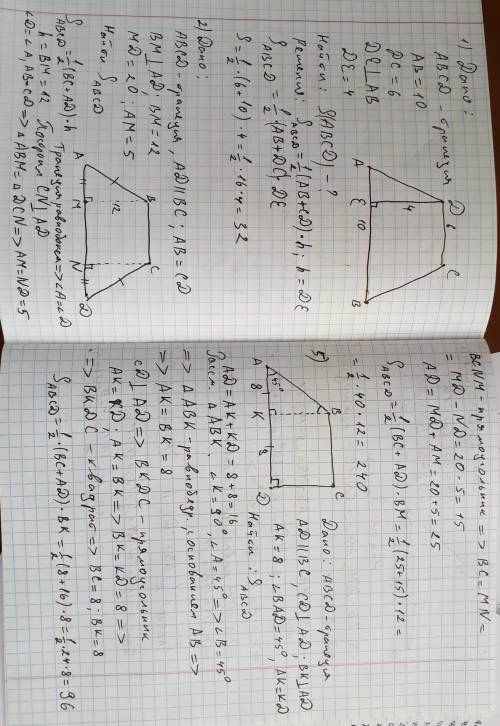 1) Дано:
ABCD - трапеция
AB = 10
DC = 6
DC ⊥ AB
DE = 4
Найти: S(ABCD) - ?
Решение: S ABCD = 1/2 (AB+CD)·h; h = DE
S ABCD = 1/2 (AB+DC)·DE
S = 1/2 · (6+10) · 4 = 1/2 · 16·4 = 32
D
6
C
4
A
E
10
B
2) Дано:
ABCD - трапеция, AD∥BC; AB = CD
BM⊥AD; BM = 12
MD = 20; AM = 5
Найти S ABCD
S ABCD = 1/2 (BC+AD)·h
h = BM = 12 Построим CN⊥AD
Трапеция равнобокая => ∠A = ∠D
∠D = ∠A, AB = CD => △ABM = △DCN => AM = ND = 5
B
C
12
A
M
N
D
BCNM - прямоугольник => BC = MN =
= MD - ND = 20 - 5 = 15
AD = MD + AM = 20+5 = 25
S ABCD = 1/2 (BC+AD)·BM = 1/2 (25+15)·12 =
= 1/2 · 40·12 = 240
5)
Дано: ABCD - трапеция
AD∥BC, CD⊥AD; BK⊥AD
AK = 8; ∠BAD = 45°, AK = KD
Найти: S ABCD
B
C
A
45°
8
K
8
D
AD = AK+KD = 8+8 = 16
Рассм. △ABK, ∠K = 90°, ∠A = 45° => ∠B = 45°
=> △ABK - равнобедр. с основанием AB =>
=> AK = BK = 8
CD⊥AD => BKDC - прямоугольник
AK = KD; AK = BK => BK = KD = 8 =>
=> BKDC - квадрат => BC = 8; BK = 8
S ABCD = 1/2 · (BC+AD)·BK = 1/2 (8+16)·8 = 1/2 · 24·8 = 96